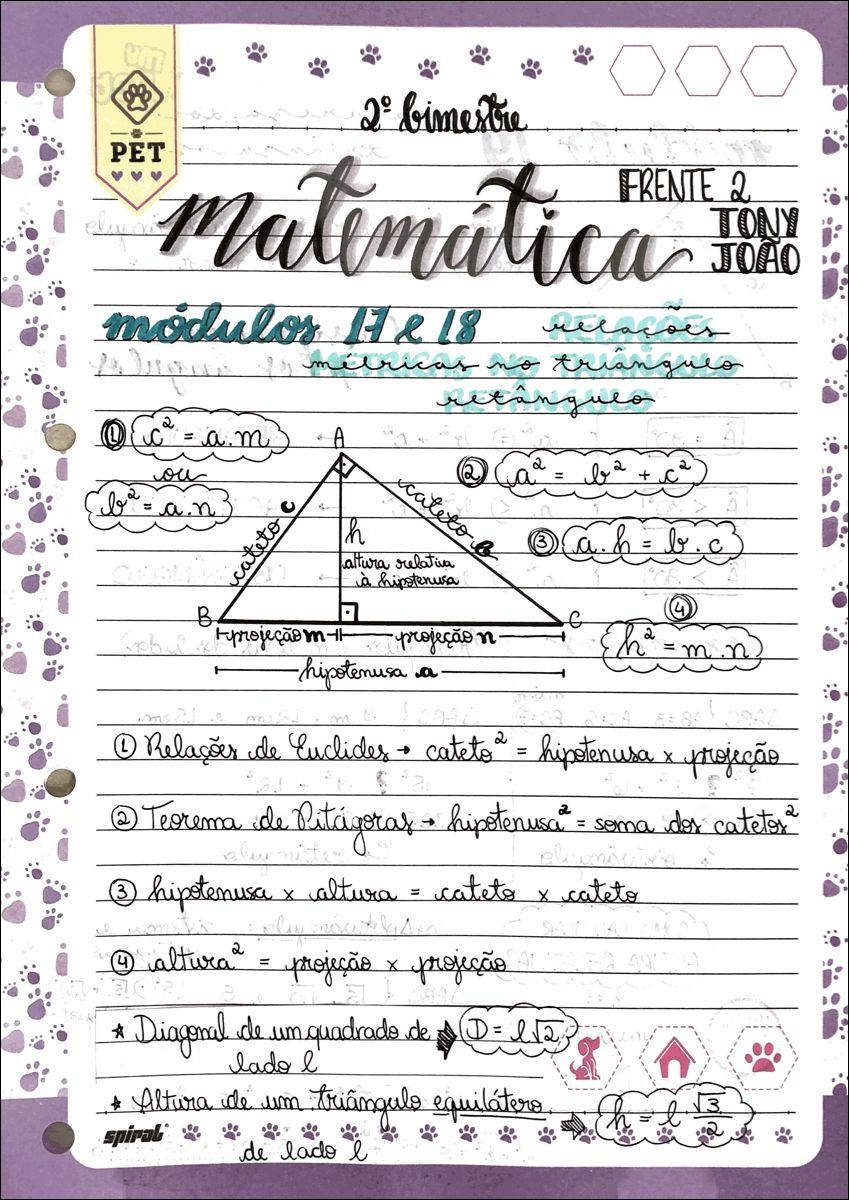 PET
2º bimestre
matemática
FRENTE 2
TONY
JOÃO
módulos 17 e 18
relações
métricas no triângulo
retângulo
① c² = a.m
ou
b² = a.n
A
② a² = b² + c²
cateto c
cateto b
h
altura relativa
à hipotenusa
③ a.h = b.c
④
h² = m.n
B
C
projeção m
projeção n
hipotenusa a
① Relações de Euclides → cateto² = hipotenusa x projeção
② Teorema de Pitágoras → hipotenusa² = soma dos catetos²
③ hipotenusa x altura = cateto x cateto
④ altura² = projeção x projeção
* Diagonal de um quadrado de
lado l
D = l√2
* Altura de um triângulo equilátero
de lado l
h = l √3/2
spiral